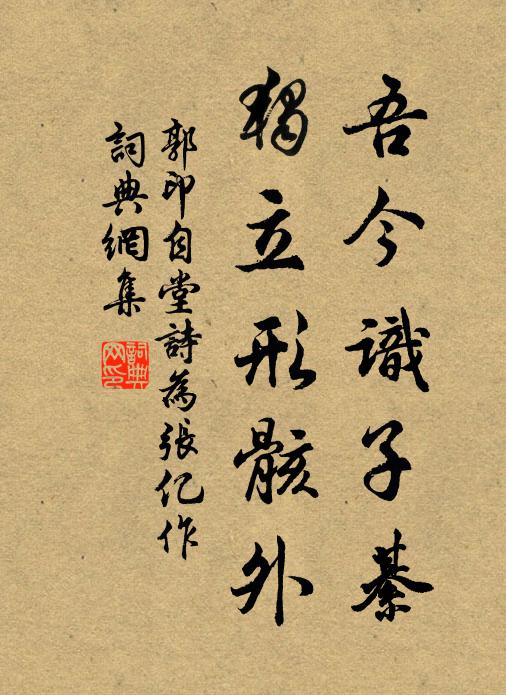 吾今識子綦
獨立形骸外
郭印自堂詩為張仡作
詞典網集
詞典網印